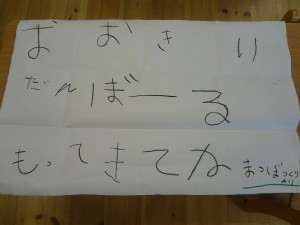 おおきい
だんぼーる
もってきてか
まつぼっくり
より